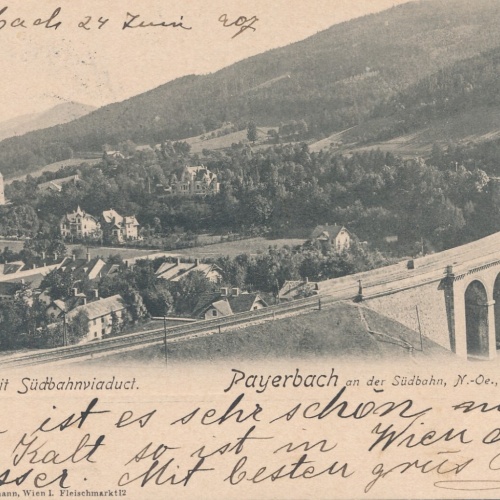 bach 24 Juni 907
it Südbahnviaduct.
Payerbach an der Südbahn, N.-Oe.,
ist es sehr schön
Kalt so ist in Wien
sser. Mit besten grüs
ann, Wien I. Fleischmarkt 12